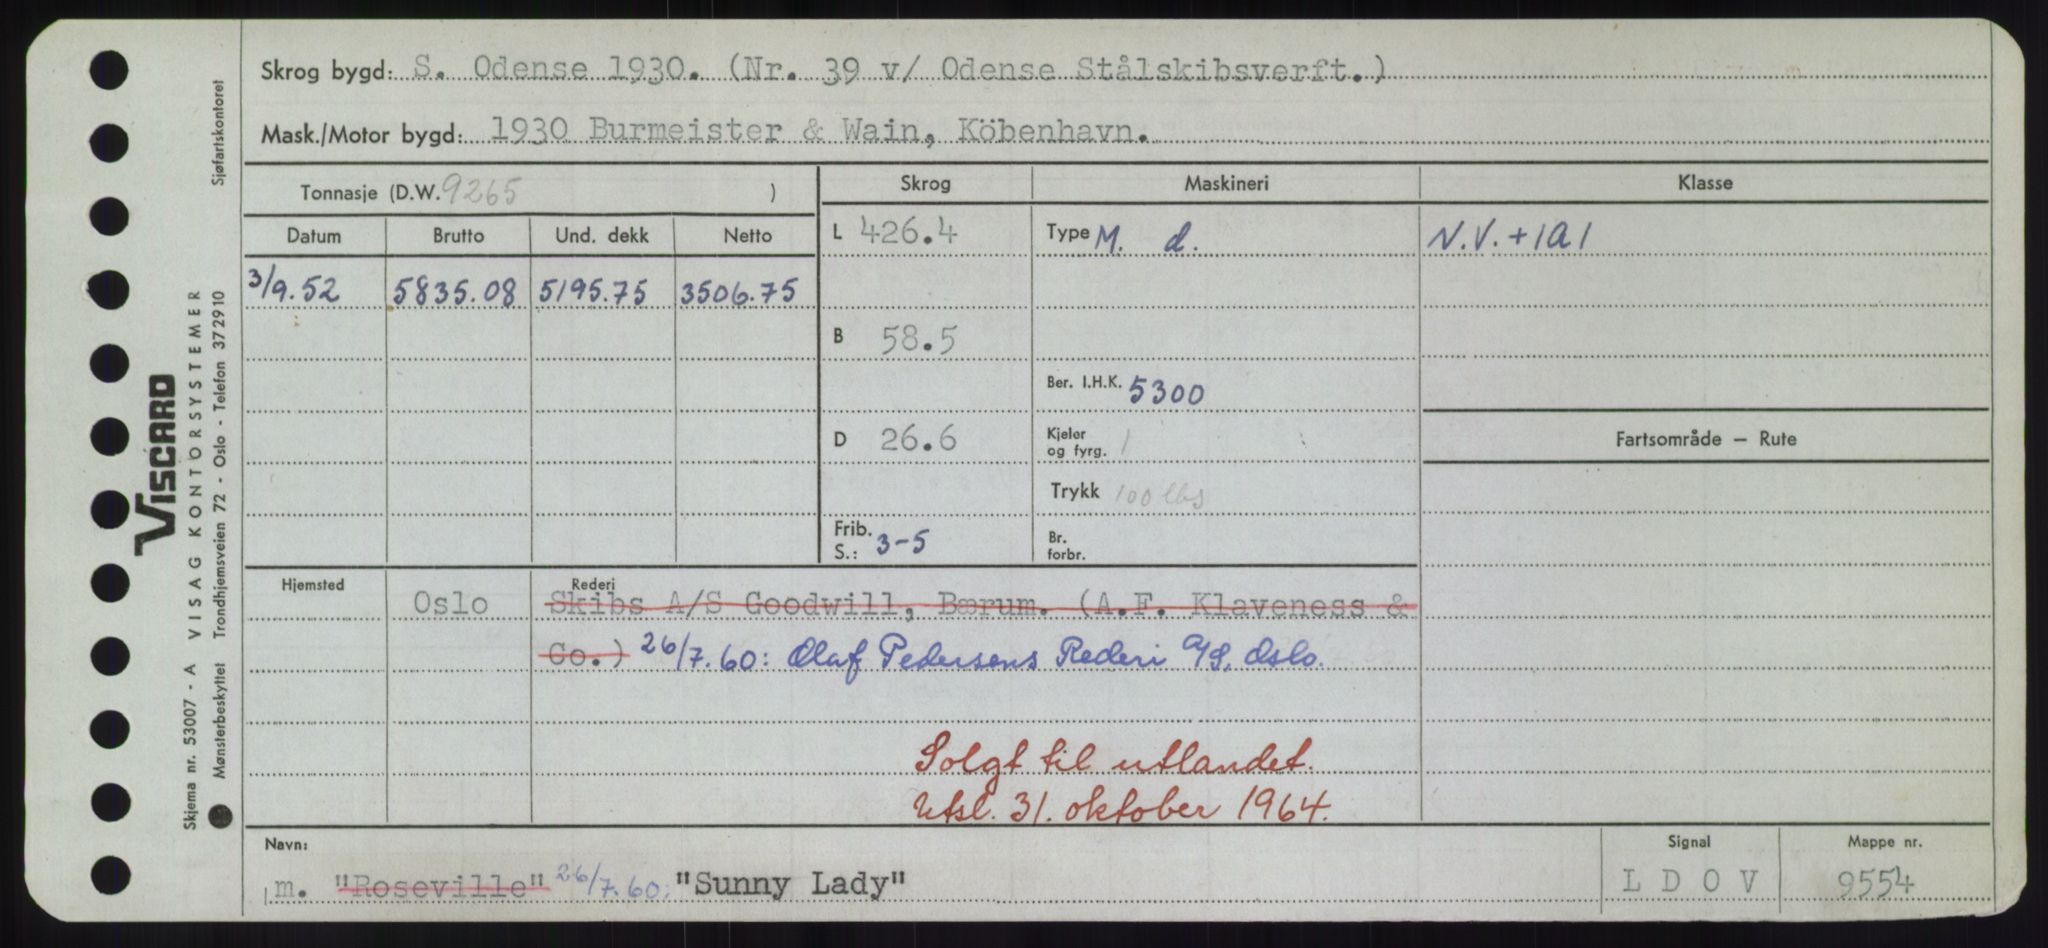 Skrog bygd: S. Odense 1930. (Nr. 39 v/ Odense Stålskibsverft.)
Mask./Motor bygd: 1930 Burmeister & Wain, Köbenhavn.
Tonnasje (D.W. 9265 )
Skrog Maskineri Klasse
Datum Brutto Und. dekk Netto
L 426.4 Type M. d. N.V. +1A1
3/9.52 5835.08 5195.75 3506.75
B 58.5
Ber. I.H.K. 5300
D 26.6
Kjeler og fyrg. 1
Fartsområde – Rute
Trykk 100 lbs
Frib. S.: 3-5
Br. forbr.
Hjemsted Oslo
Rederi
Skibs A/S Goodwill, Bærum. (A.F. Klaveness &
Co.) 26/7.60: Olaf Pedersens Rederi A/S, Oslo.
Solgt til utlandet.
Utsl. 31. oktober 1964.
Navn: Signal Mappe nr.
m. "Roseville" 26/7.60: "Sunny Lady" L D O V 9554
VISCARD
Skjema nr. 53007 - A VISAG KONTORSYSTEMER
Mønsterbeskyttet Trondhjemsveien 72 - Oslo - Telefon 372910 Sjøfartskontoret